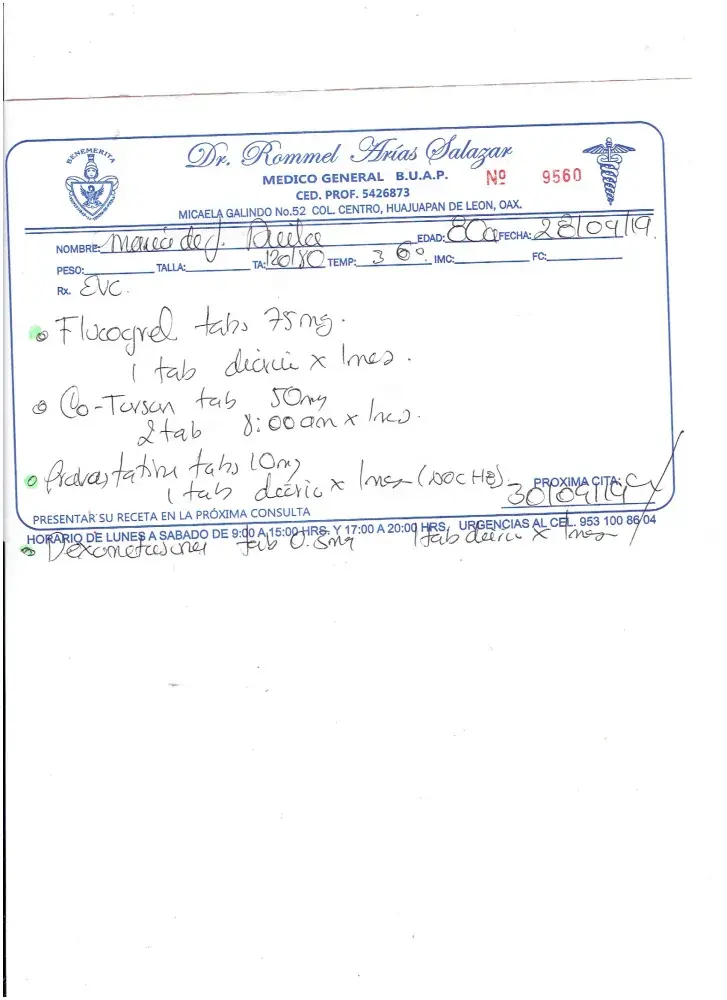 BENEMERITA
Dr. Rommel Arías Salazar
MEDICO GENERAL B.U.A.P. Nº 9560
CED. PROF. 5426873
MICAELA GALINDO No.52 COL. CENTRO, HUAJUAPAN DE LEON, OAX.
NOMBRE: Maria de J. EDAD: 80a FECHA: 28/09/19
PESO: TALLA: TA: 120/80 TEMP: 36°. IMC: FC:
Rx. EVC.
Flucogrel tabs 75mg.
1 tab diaria x 1mes.
Co-Tarsan tab 50mg
2tab 8:00am x 1mes.
Pravastatina tabs 10mg
1 tab diaria x 1mes PROXIMA CITA:
30/09/19
PRESENTAR SU RECETA EN LA PRÓXIMA CONSULTA
HORARIO DE LUNES A SABADO DE 9:00 A 15:00 HRS. Y 17:00 A 20:00 HRS, URGENCIAS AL CEL. 953 100 86 04
tab 1 tab diaria x 1mes